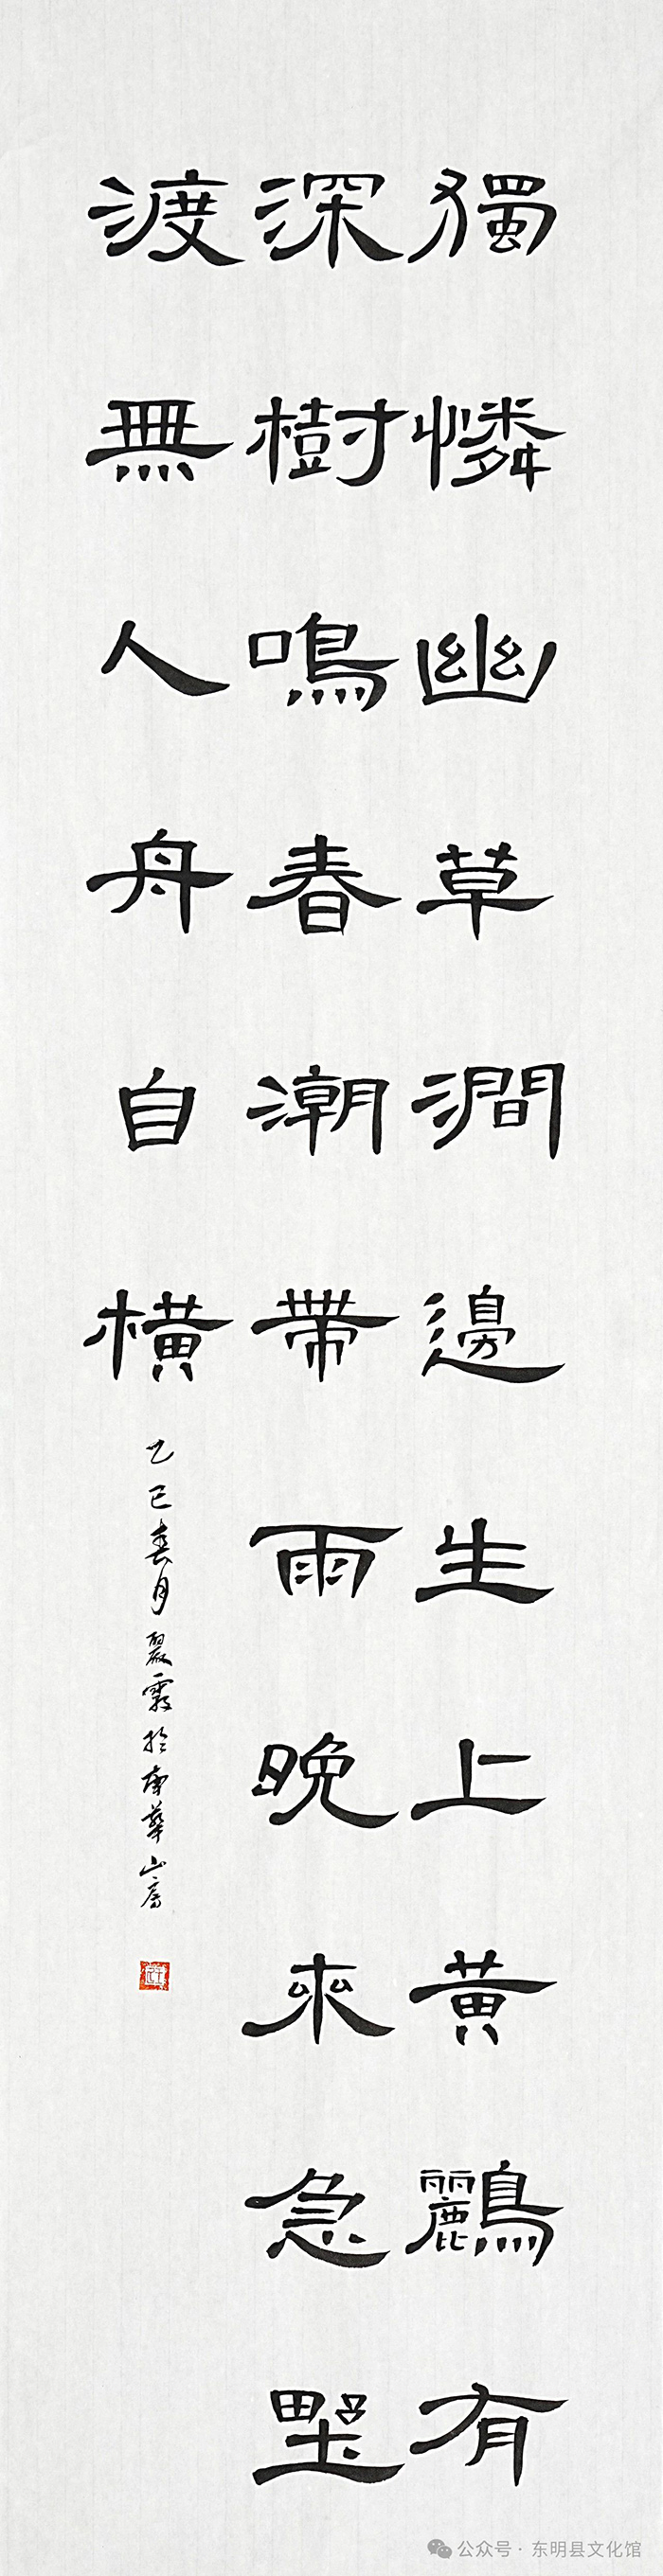 獨憐幽草澗邊生上黃鸝有
深樹鳴春潮帶雨晚來急野
渡無人舟自橫
乙巳春月翠霞於南華山房
公众号·东明县文化馆